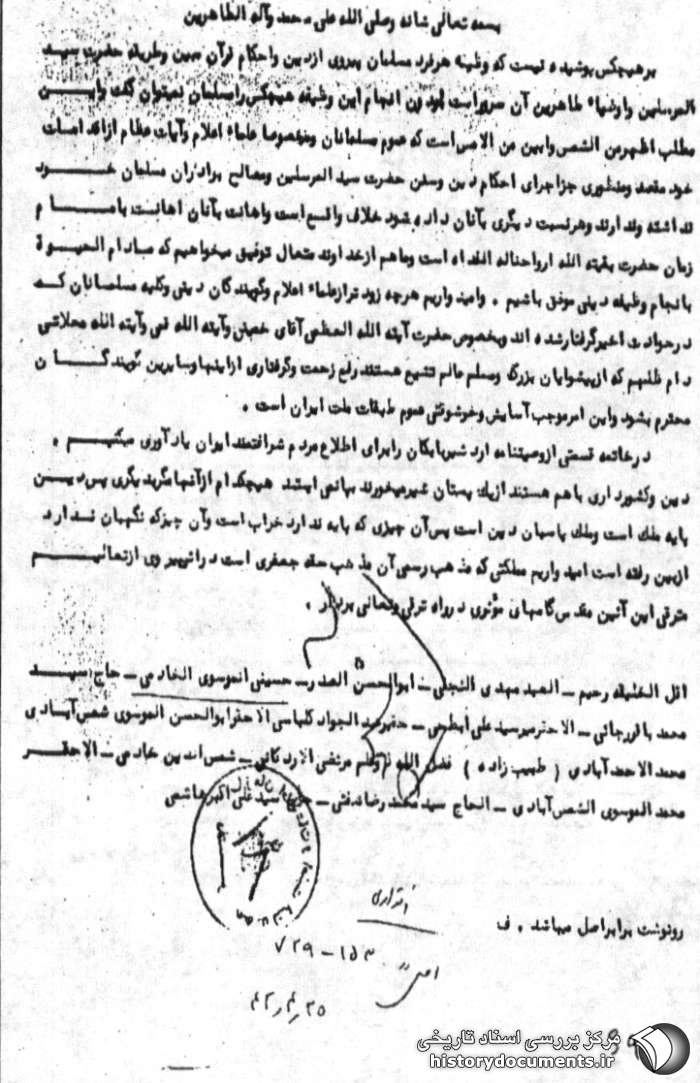 بسمه تعالی شانه وصلی الله علی محمد وآله الطاهرین
برهیچکس پوشیده نیست که وظیفه هرفرد مسلمان پیروی ازدین واحکام قرآن مبین وطریقه حضرت سید
المرسلین واوصیاء طاهرین آن سروراست بدون انجام این وظیفه هیچکس رامسلمان نمیتوان گفت واین
مطلب اظهرمن الشمس وابین من الامس است که عموم مسلمانان ومخصوصا علماء اعلام وآیات عظام ازاقدامات
خود مقصد ومنظوری جزاجرای احکام دین وسنن حضرت سید المرسلین ومصالح برادران مسلمان خود
نداشته وندارند وهرنسبت دیگری بآنان داده شود خلاف واقع است واهانت بآنان اهانت بامام
زمان حضرت بقیته الله ارواحناله الفداه است وماهم ازخداوند متعال توفیق میخواهیم که مادام الحیوة
بانجام وظیفه دینی موفق باشیم . وامید واریم هرچه زود ترازعلماء اعلام وگویندگان دینی وکلیه مسلمانان که
درحوادث اخیرگرفتارشده اند وبخصوص حضرت آیته الله العظمی آقای خمینی وآیته الله قمی وآیته الله محلاتی
دام ظلهم که ازپیشوایان بزرگ ومسلم عالم تشیع هستند رفع زحمت وگرفتاری ازاینها وسایرین گویندگان
محترم بشود واین امرموجب آسایش وخرشوقتی عموم طبقات ملت ایران است .
درخاتمه قسمتی ازوصیتنامه اردشیربابکان رابرای اطلاع مردم شرافتمند ایران یادآوری میکنیم .
دین وکشورداری باهم هستند ازیک پستان شیرمیخورند بهائمی هیچکدام ازآنها دیگری پس دین
پایه ملک است وملک پاسبان دین است پس آن چیزی که پایه ندارد خراب است وآن چیزکه نگهبان ندارد
ازبین رفته است امید واریم مملکتی که مذهب رسمی آن مذهب حقه جعفری است دراثرپیروی ازتعالیم
مترقی این آئین مقدس گامهای مؤثری درراه ترقی وتعالی بردارد .
اقل الخلیقه رحیم – العبد مهدی النجفی – ابوالحسن الصدر – حسینی الموسوی الخادمی – حاج سید
محمد باقررجائی – الاحقرمیرسید علی ابطحی – حقیرعبدالجواد کلباسی الاحقرابوالحسن الموسوی شمس آبادی
محمد الاحمدآبادی ( طبیب زاده ) فضل الله مرتضی الاردکانی – شمس الدین خادمی – الاحقر
محمد الموسوی الشمس آبادی – الحاج سید محمد رضا – سید علی اکبرهاشمی
رونوشت برابراصل میباشد . ف
۷۲۹-۱۵۳
۴۲٫۴٫۲۵
مرکز بررسی اسناد تاریخی
historydocuments.ir